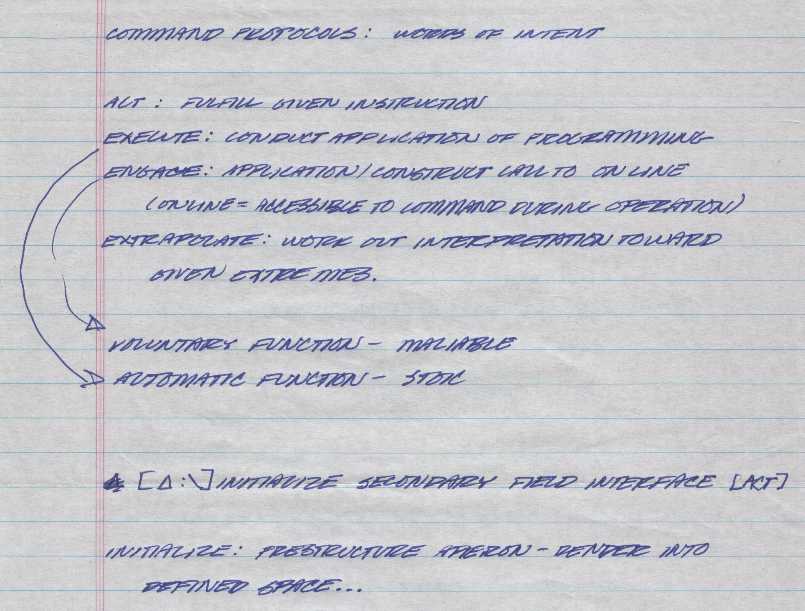 COMMAND PROTOCOLS: WORDS OF INTENT
ACT: FULFILL GIVEN INSTRUCTION
EXECUTE: CONDUCT APPLICATION OF PROGRAMMING
ENGAGE: APPLICATION/CONSTRUCT CALL TO ONLINE
(ONLINE = ACCESSIBLE TO COMMAND DURING OPERATION)
EXTRAPOLATE: WORK OUT INTERPRETATION TOWARD
GIVEN EXTREMES.
VOLUNTARY FUNCTION - MALIABLE
AUTOMATIC FUNCTION - STOIC
[Δ:\] INITIALIZE SECONDARY FIELD INTERFACE [ACT]
INITIALIZE: PRESTRUCTURE APERON - RENDER INTO
DEFINED SPACE...